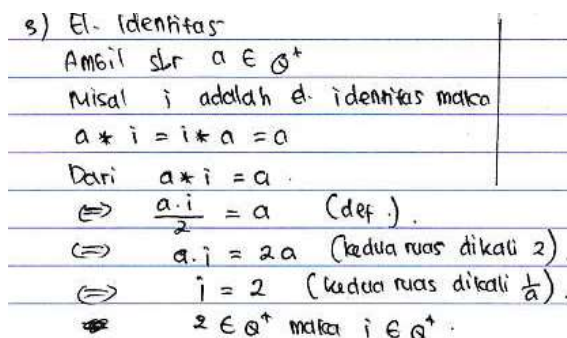 3) El. Identitas
Ambil sbr a ∈ Q⁺
Misal i adalah el. identitas maka
a * i = i * a = a
Dari a * i = a .
⇔ a.i/2 = a (def.).
⇔ a.i = 2a (kedua ruas dikali 2)
⇔ i = 2 (kedua ruas dikali 1/a).
2 ∈ Q⁺ maka i ∈ Q⁺.